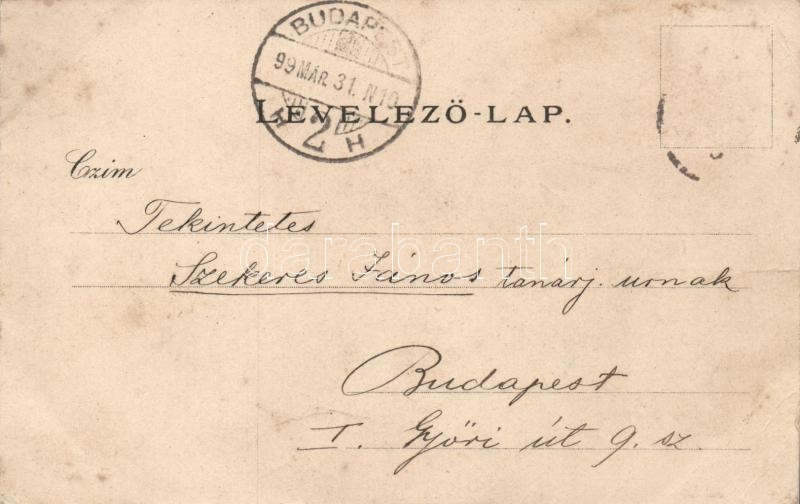 BUDAPEST
99 MÁR. 31. N10
H 2 H
LEVELEZŐ-LAP.
Czim
Tekintetes
Szekeres János tanárj. urnak
darabanth
Budapest
I. Győri út 9. sz.